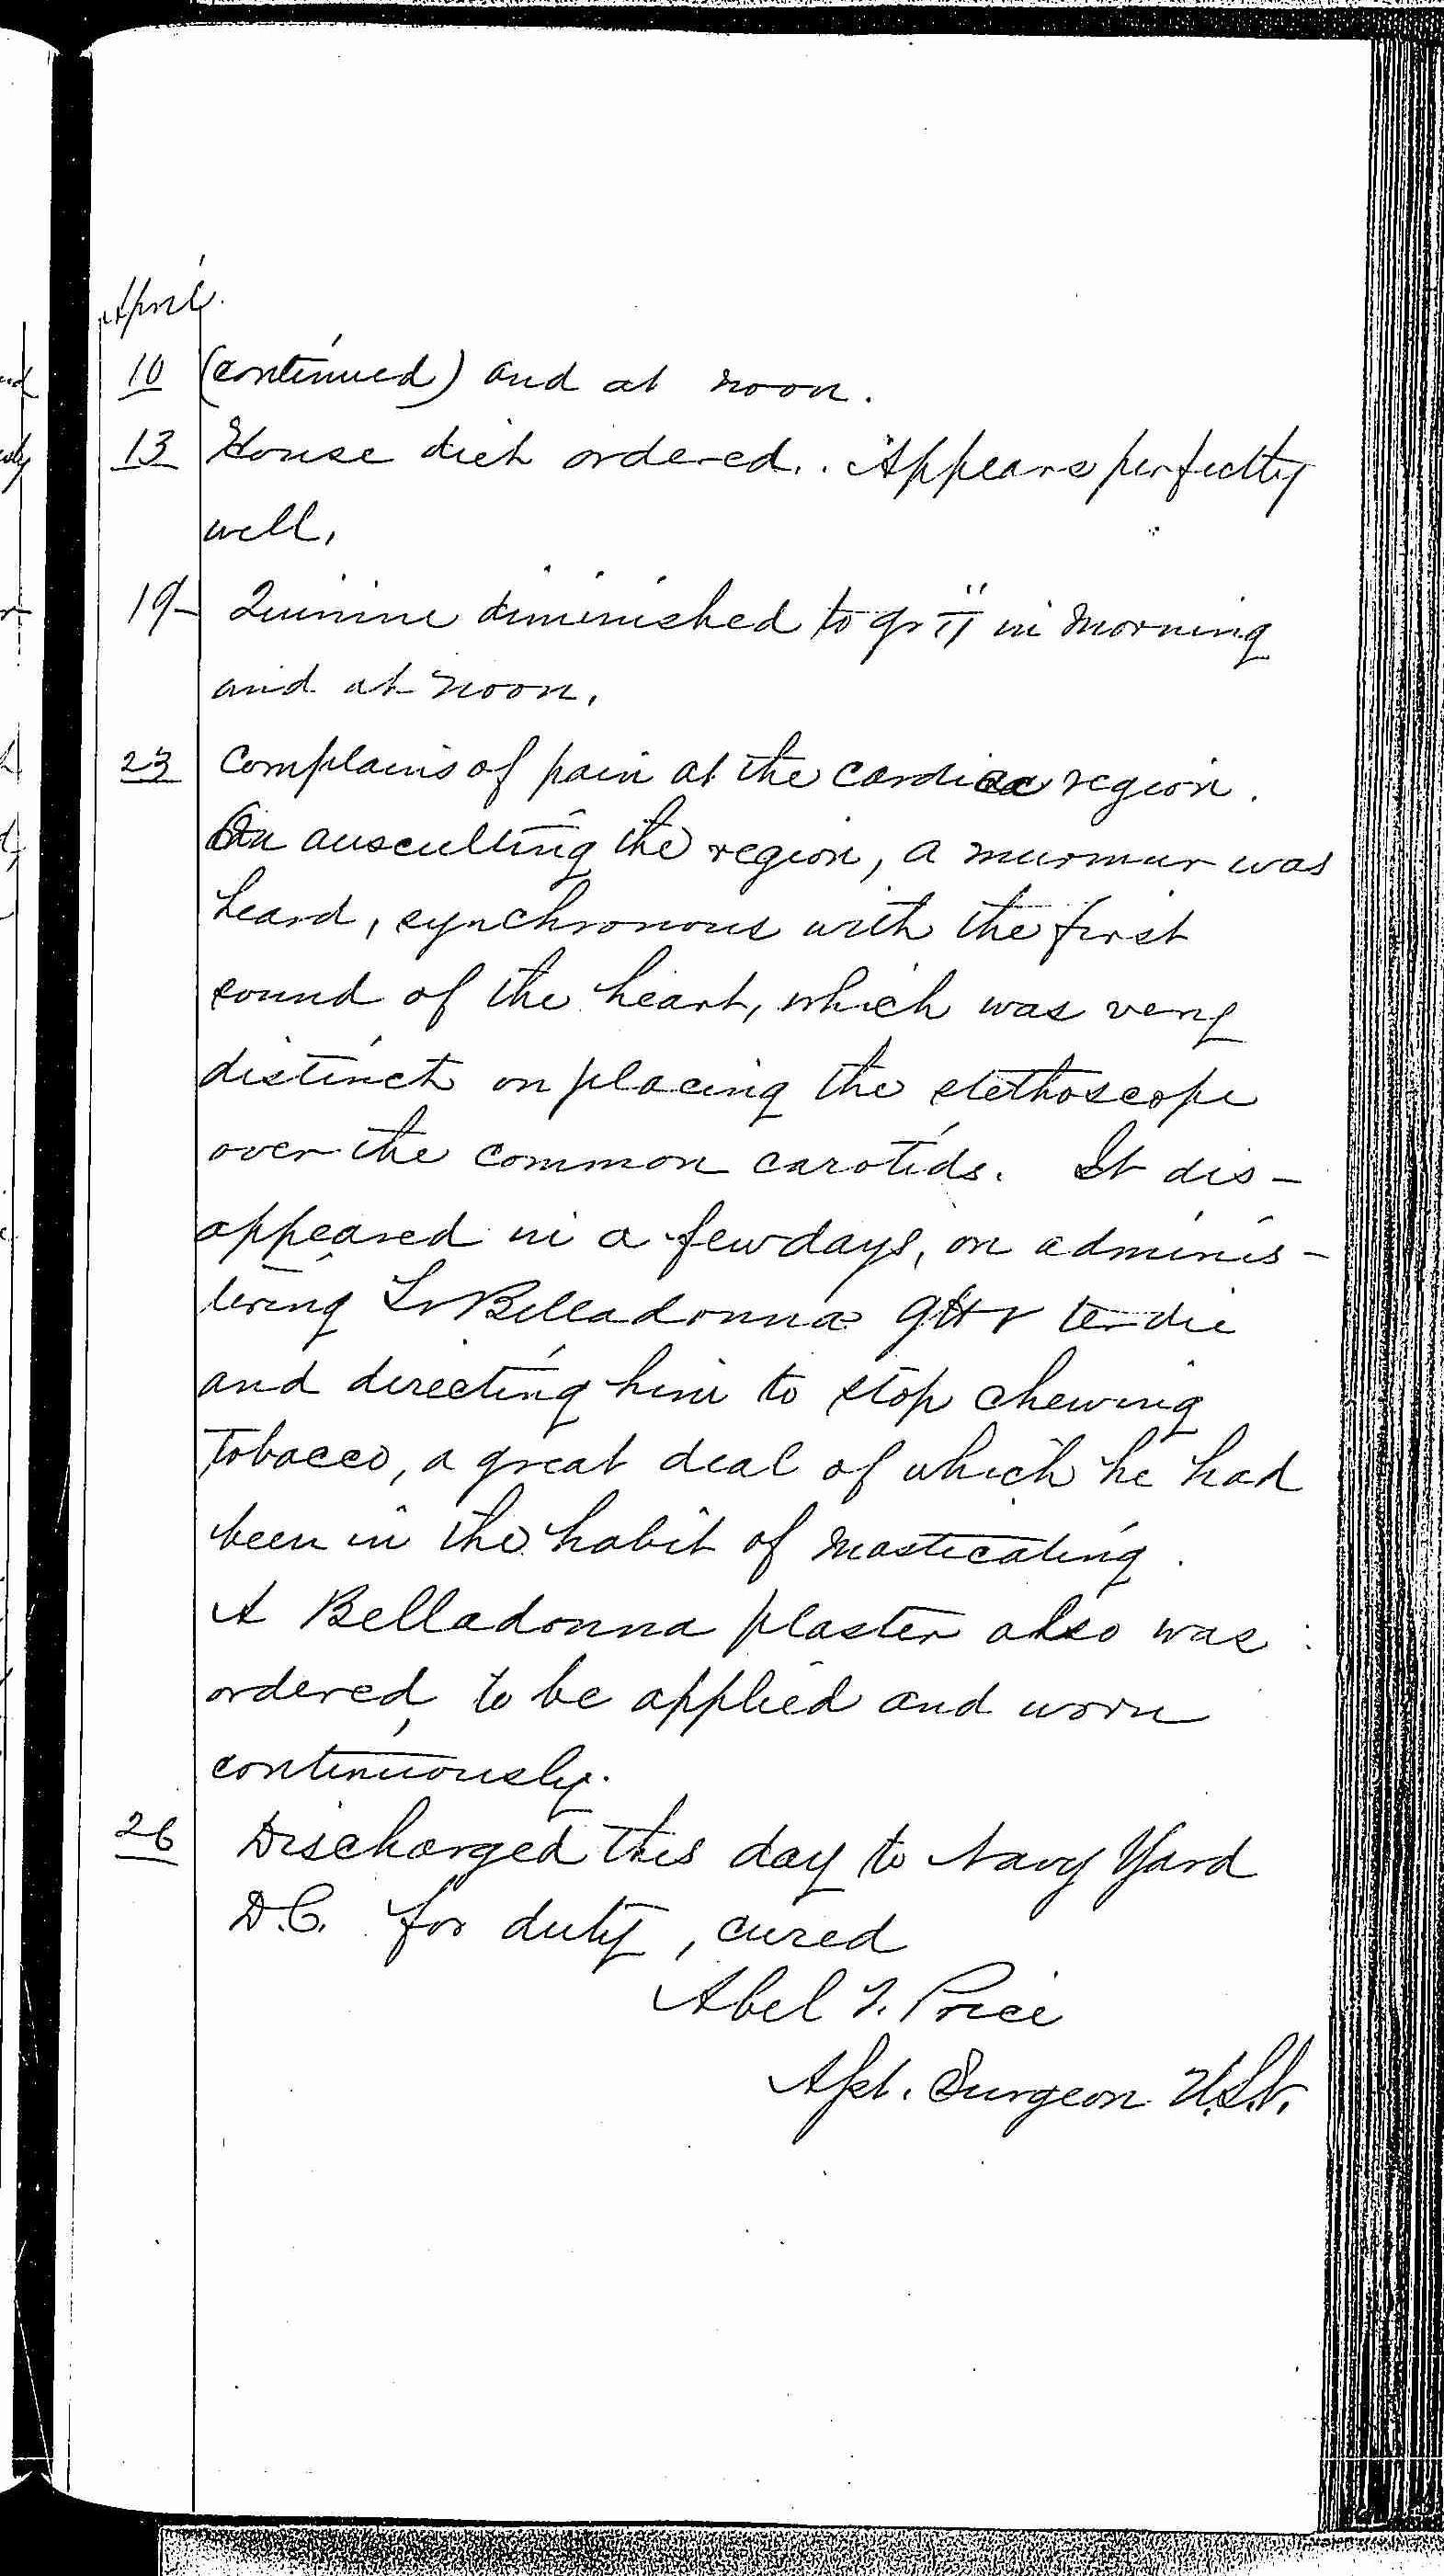 April
10 (continued) and at noon.
13 House diet ordered. Appears perfectly
well.
19 Quinine diminished to gr ii in morning
and at noon.
23 Complains of pain at the cardiac region.
On ausculting the region, a murmur was
heard, synchronous with the first
sound of the heart, which was very
distinct on placing the stethoscope
over the common carotids. It dis-
appeared in a few days, on adminis-
tering Tr Belladonna gtt v ter die
and directing him to stop chewing
tobacco, a great deal of which he had
been in the habit of masticating.
A Belladonna plaster also was
ordered to be applied and worn
continuously.
26 Discharged this day to Navy Yard
D.C. for duty, cured
Abel F. Price
Asst. Surgeon U.S.N.